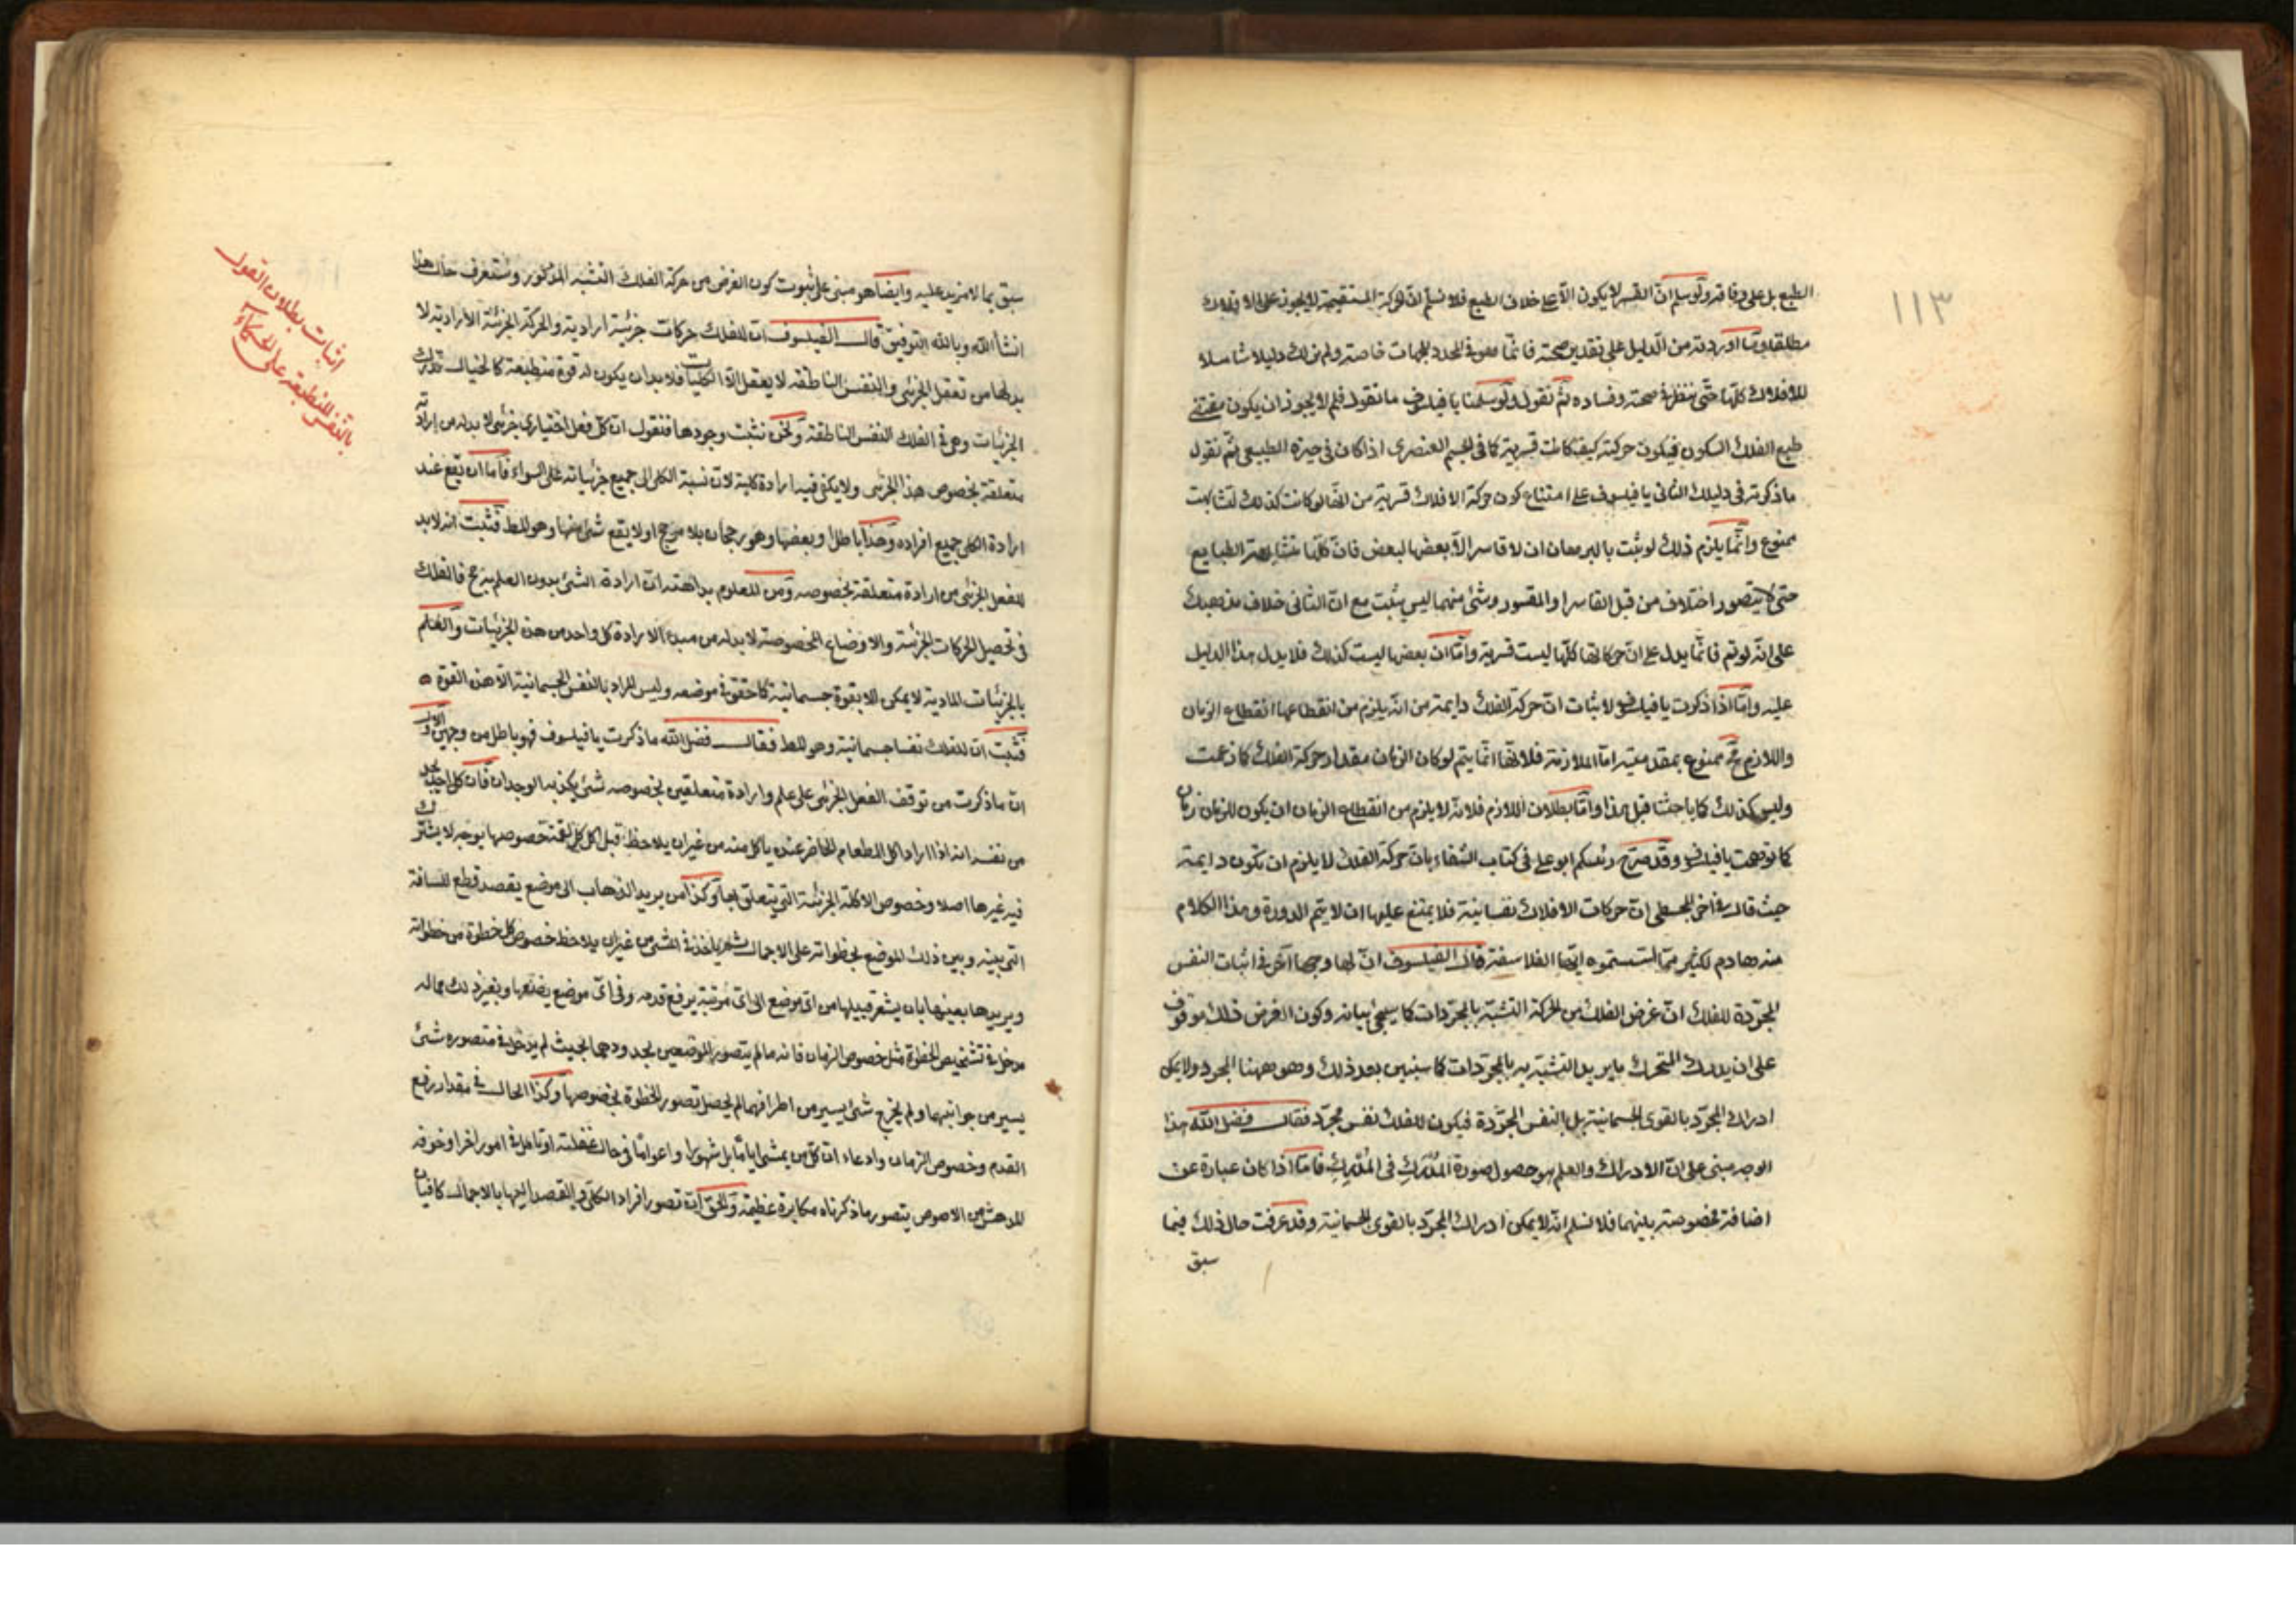 ١١٣
الطبع بل على وفاقه ولو سلم ان القسر لا يكون الا على خلاف الطبع فلا نسلم ان الحركة المستقيمة لا يجوز على الافلاك
مطلقا وما اوردته من الدليل على تقدير صحته فانما هو في المحدد للجهات خاصة ولم نر لك دليلا شاملا
للافلاك كلها حتى ننظر في صحته وفساده ثم نقول ولو سلمنا يا فيلسوف ما تقول فلم لا يجوز ان يكون مقتضى
طبع الفلك السكون فيكون حركته كيف كانت قسرية كما في الجسم العنصرى اذا كان في حيزه الطبيعى ثم نقول
ما ذكرته في دليلك الثانى يا فيلسوف على امتناع كون حركة الافلاك قسرية من انها لو كانت كذلك لتشابهت
ممنوع وانما يلزم ذلك لو ثبت بالبرهان ان لا قاسر الا بعضها لبعض فان كلها متشابهة الطبايع
حتى لا يتصور اختلاف من قبل القاسر او المقسور وشئ منهما ليس بثبت مع ان الثانى خلاف مذهبك
على انه لو تم فانما يدل على ان حركاتها كلها ليست قسرية واما ان بعضها ليست كذلك فلا يدل هذا الدليل
عليه واما اذا ذكرت يا فيلسوف لاثبات ان حركة الفلك دايمة من انه يلزم من انقطاعها انقطاع الزمان
واللازم مح ممنوع بمقدمتيه اما الملازمة فلانها انما يتم لو كان الزمان مقدار حركة الفلك كما زعمت
وليس كذلك كما باحثنا قبل هذا واما بطلان اللازم فلانه لا يلزم من انقطاع الزمان ان يكون للزمان زمان
كما توهمت يا فيلسوف وقد صرح رئيسكم ابو على في كتاب الشفاء بان حركة الفلك لا يلزم ان تكون دايمة
حيث قال في آخر المجسطى ان حركات الافلاك نفسانية فلا يمتنع عليها ان لا يتم الدورة وهذا الكلام
منه هادم لكثير مما اسستموه ايها الفلاسفة قال الفيلسوف ان لها وجها آخر في اثبات النفس
المجردة للفلك ان غرض الفلك من الحركة التشبه بالمجردات كما سيجئ بيانه وكون الغرض ذلك موقوف
على ان يدرك المتحرك ما يريد التشبه به بالمجردات كما سنبين بعد ذلك وهو ههنا المجرد ولا يمكن
ادراك المجرد بالقوى الجسمانية بل بالنفس المجردة فيكون للفلك نفس مجرد فقال فضل الله هذا
الوجه مبنى على ان الادراك والعلم هو حصول صورة المُدْرَك في المُدْرِك فاما اذا كان عبارة عن
اضافة مخصوصة بينهما فلا نسلم انه لا يمكن ادراك المجرد بالقوى الجسمانية وقد عرفت حال ذلك فيما
سبق
سبق بما لا مزيد عليه وايضا هو مبنى على ثبوت كون الغرض من حركة الفلك التشبه المذكور وستعرف حال هذا
انشا الله وبالله التوفيق قال الفيلسوف ان للفلك حركات جزئية ارادية والحركة الجزئية الارادية لا
بد لها من تعقل الجزئى والنفس الناطقة لا يعقل الا الكليات فلا بد ان يكون له قوة منطبعة كالخيال تدرك
الجزئيات وهى في الفلك النفس الناطقة ونحن نثبت وجودها فنقول ان كل فعل اختيارى جزئى لا بد له من ارادته
متعلقة بخصوص هذا الجزئى ولا يكفى فيه ارادة كلية لان نسبة الكلى الى جميع جزئياته على السواء فاما ان يقع عند
ارادة الكلى جميع افراده وهذا باطل او بعضها وهو رجحان بلا مرجح او لا يقع شئ منها وهو للط فثبت انه لا بد
للفعل الجزئى من ارادة متعلقة بخصوصه ومن المعلوم بداهته ان ارادة الشئ بدون العلم به مح فالفلك
في تحصيل الحركات الجزئية والاوضاع المخصوصة لا بد له من مبدء الارادة كل واحد من هذه الجزئيات والعلم
بالجزئيات المادية لا يمكن الا بقوة جسمانية كما حقق في موضعه وليس المراد بالنفس الجسمانية الا هذه القوة
فثبت ان للفلك نفسا جسمانية وهو للط فقال فضل الله ما ذكرت يا فيلسوف فهو باطل من وجهين الاول
ان ما ذكرت من توقف الفعل الجزئى على علم وارادة متعلقين بخصوصه شئ يكذبه الوجدان فان كل احد يجد
من نفسه انه اذا اراد اكل الطعام الحاضر عنده ياكل منه من غير ان يلاحظ قبل اكل كل لقمة خصوصها بوجه لا يشترك
فيه غيرها اصلا وخصوص الاكلة الجزئية التى يتعلق بها وكذا من يريد الذهاب الى موضع يقصد قطع المسافة
التى بينه وبين ذلك الموضع بخطواته على الاجمال ثم ياخذ في المشى من غير ان يلاحظ خصوص كل خطوة من خطواته
ويريدها بعينها بان يشعر قبيلها من اى موضع الى اى مرتبة يرفع قدمه وفى اى موضع يضعها وبغير ذلك مما له
مدخل في تشخيص الخطوة مثل خصوص الزمان فانه ما لم يتصور الموضعين بحدودهما بحيث لم يدخل في متصوره شئ
يسير من جوانبهما ولم يخرج شئ يسير من اطرافهما لم يحصل تصور الخطوة بخصوصها وكذا الحال في مقدار رفع
القدم وخصوص الزمان وادعاء ان كل من يمشى اياما بل شهورا واعواما في حال غفلته او تامله في امور اخر او خوفه
المدهش من اللصوص يتصور ما ذكرناه مكابرة عظيمة والحق ان تصور افراد الكلى والقصد اليها بالاجمال كافيان
اثبات بطلان القول
بالنفس المنطبعة على الحكماء